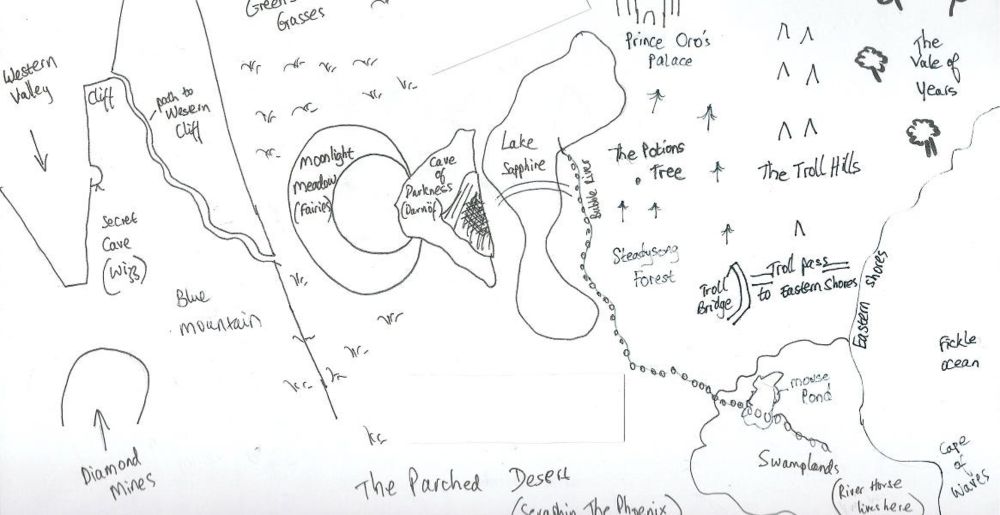 Green
Grasses
Western
Valley
Cliff
path to
Western
Cliff
Secret
Cave
(Wizz)
Blue
mountain
Diamond
Mines
moonlight
meadow
(Fairies)
Cave
of
Darkness
(Darnof)
Lake
Sapphire
Bubble River
Prince Oro's
Palace
The Potions
Tree
Steadysong
Forest
The Troll Hills
The
Vale of
Years
Troll
Bridge
Troll pass
to Eastern Shores
Eastern shores
Fickle
ocean
mouse
Pond
Swamplands
(River Horse
lives here)
Cape
of
Waves
The Parched Desert
(Seraphin The Phoenix)